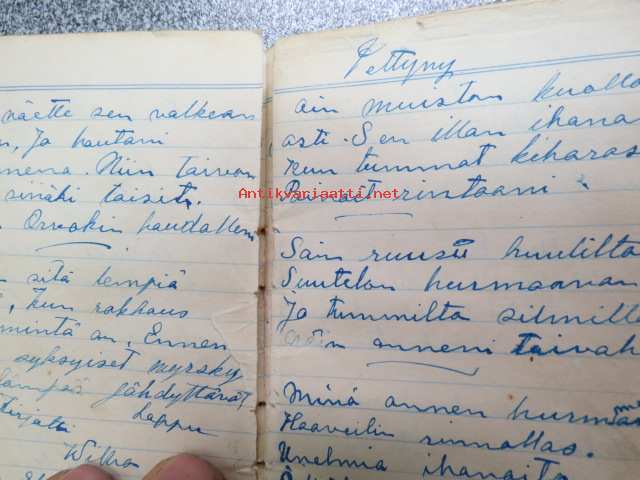 näette sen valkean
n, Ja hautani
mena. Niin taivaan
sinäki taisit.
Orvokin haudallem
sitä lempiä
, kun rakkaus
mintä on. Ennen
syksyiset myrsky
lämpöä jähdyttävät
Kirjotti Loppu
Pettyny
ain muistan kuolla
asti. Sen illan ihana
Kun tummat kiharas
rintaani.
Antikvariaatti.net
Sain ruusu huulilta
Suutelon hurmaavan
Ja tummilta silmillä
onneni taivah
Minä onnen hurmaa
Haaveilin rinnallas.
Unelmia ihanaita